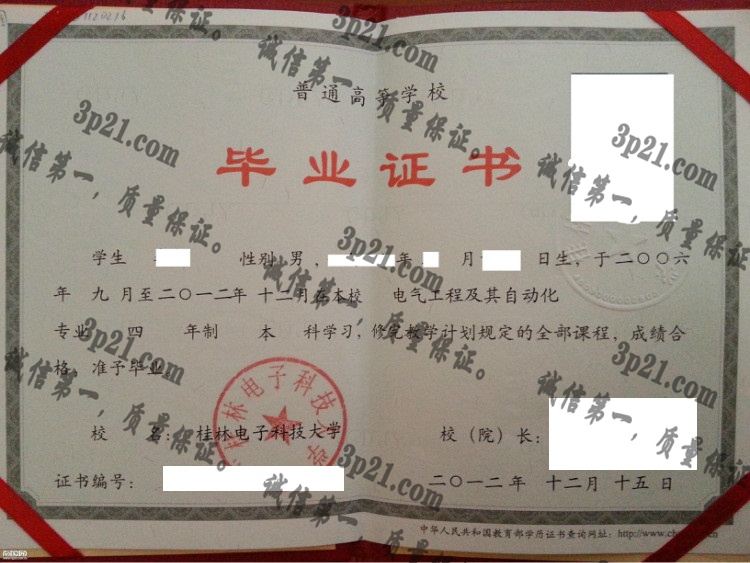 1120216
普通高等学校
毕业证书
学生 性别 男， 年 月 日生，于二〇〇六
年 九 月至二〇一二年 十二月在本校 电气工程及其自动化
专业 四 年制 本 科学习，修完教学计划规定的全部课程，成绩合
格，准予毕业。
校 名：桂林电子科技大学 校（院）长：
桂林电子科技大学
证书编号： 二〇一二年 十二月 十五日
中华人民共和国教育部学历证书查询网址：http://www.ch
3p21.com
诚信第一，质量保证。
3p21.com
诚信第一，质量保证。
3p21.com
诚信第一，质量保证。
3p21.com
诚信第一，质量保证。
3p21.com
诚信第一，质量保证。
3p21.com
诚信第一，质量保证。
3p21.com
诚信第一，质量保证。
3p21.com
诚信第一，质量保证。